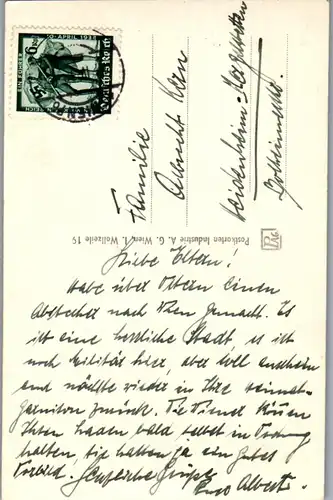 10. APRIL 1938
EIN FÜHRER
Deutsches Reich
WIEN
Familie
Albrecht Kern
Heidenheim-
Postkarten Industrie A. G. Wien, I. Wollzeile 15
PAG
Liebe Eltern!
Habe über Ostern einen
Abstecher nach Wien gemacht. Es
ist eine herrliche Stadt, es ist
noch Militär hier, aber will anscheinend
und möchte wieder in Ihre Heimat-
garnison zurück. Die Wiener können
Ihren Laden bald selbst in Ordnung
halten, sie hatten ja ein gutes
Vorbild. Herzliche Grüße
Euer Albert.